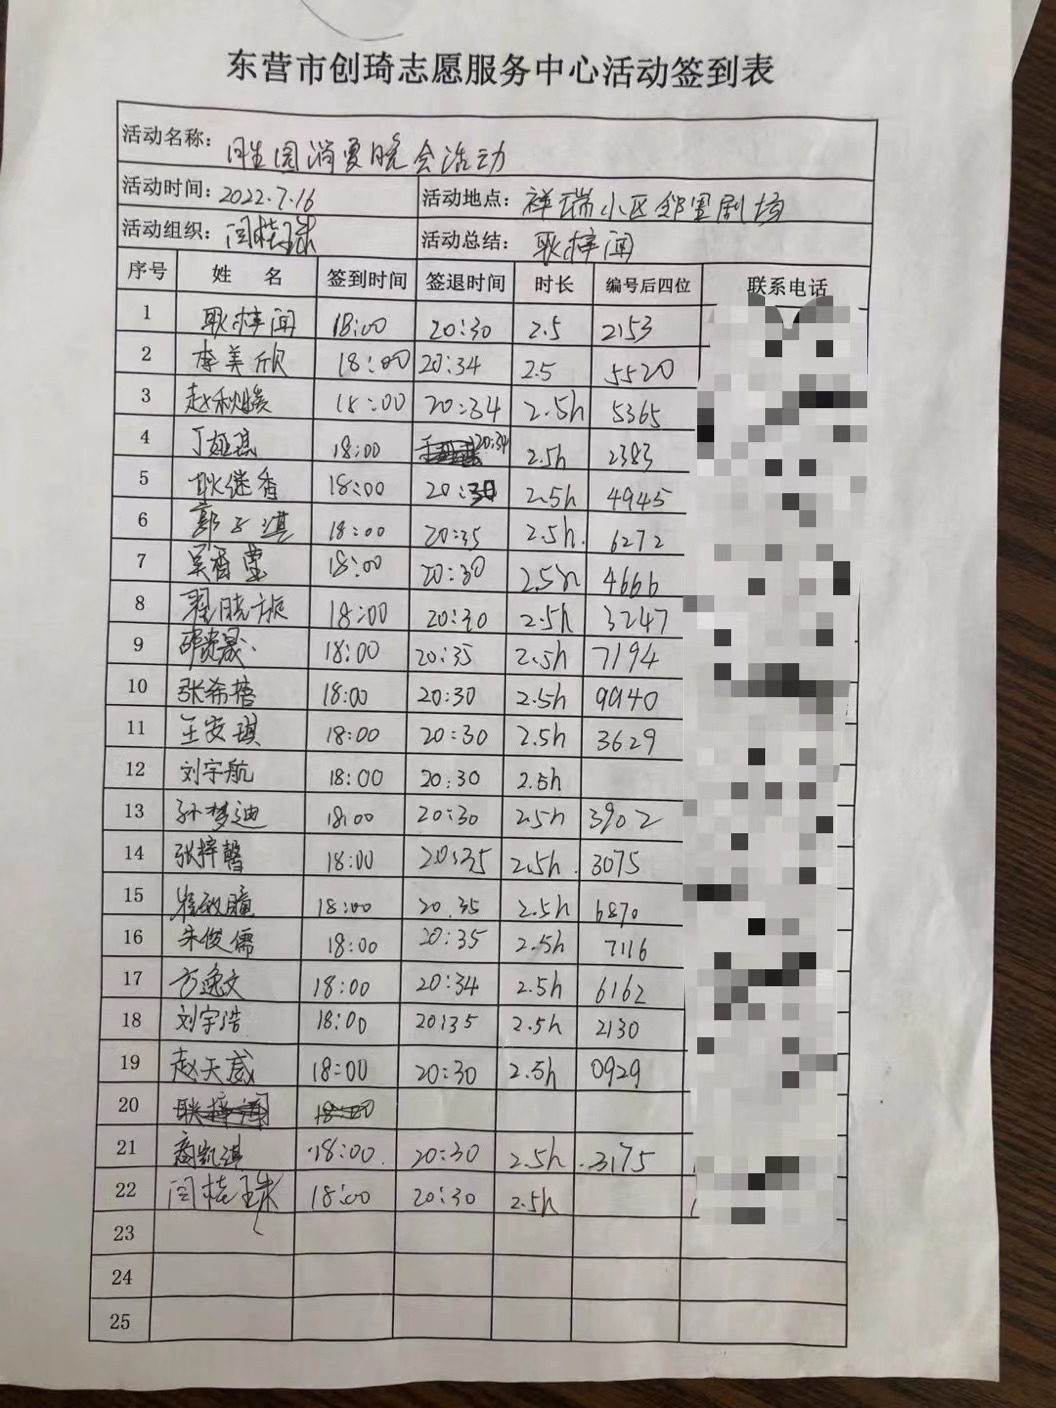 东营市创琦志愿服务中心活动签到表
活动名称: 消夏晚会活动
活动时间: 2022.7.16 活动地点: 祥瑞小区邻里剧场
活动组织: 闫桂珠 活动总结: 耿梓闻
序号 姓 名 签到时间 签退时间 时长 编号后四位 联系电话
1 耿梓闻 18:00 20:30 2.5 2153
2 李美欣 18:00 20:34 2.5 5520
3 赵秋 18:00 20:34 2.5h 5365
4 18:00 20:34 2.5h 2383
5 耿继香 18:00 20:30 2.5h 4945
6 郭子淇 18:00 20:35 2.5h. 6272
7 18:00 20:30 2.5h 4666
8 翟晓旋 18:00 20:30 2.5h 3247
9 18:00 20:35 2.5h 7194
10 张希搪 18:00 20:30 2.5h 9940
11 王安琪 18:00 20:30 2.5h 3629
12 刘宇航 18:00 20:30 2.5h
13 孙梦迪 18:00 20:30 2.5h 3902
14 张梓馨 18:00 20:35 2.5h. 3075
15 18:00 20.35 2.5h 6870
16 朱俊儒 18:00 20:35 2.5h 7116
17 方逸文 18:00 20:34 2.5h 6162
18 刘宇浩 18:00 20:35 2.5h 2130
19 赵天威 18:00 20:30 2.5h 0929
20 耿梓闻 18:00
21 商凯淇 18:00. 20:30 2.5h .3175
22 闫桂珠 18:00 20:30 2.5h
23
24
25